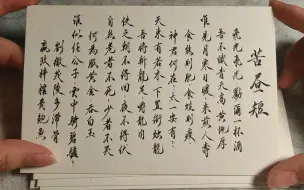 苦晝短
飛光飛光 勸爾一杯酒
吾不識青天高 黃地厚
唯見月寒日暖 來煎人壽
食熊則肥 食蛙則瘦
神君何在 太一安有
天東有若木 下置銜燭龍
吾將斬龍足 嚼龍肉
使之朝不得回 夜不得伏
自然老者不死 少者不哭
何為服黃金 吞白玉
誰似任公子 雲中騎碧驢
劉徹茂陵多滯骨
嬴政梓棺費鮑魚